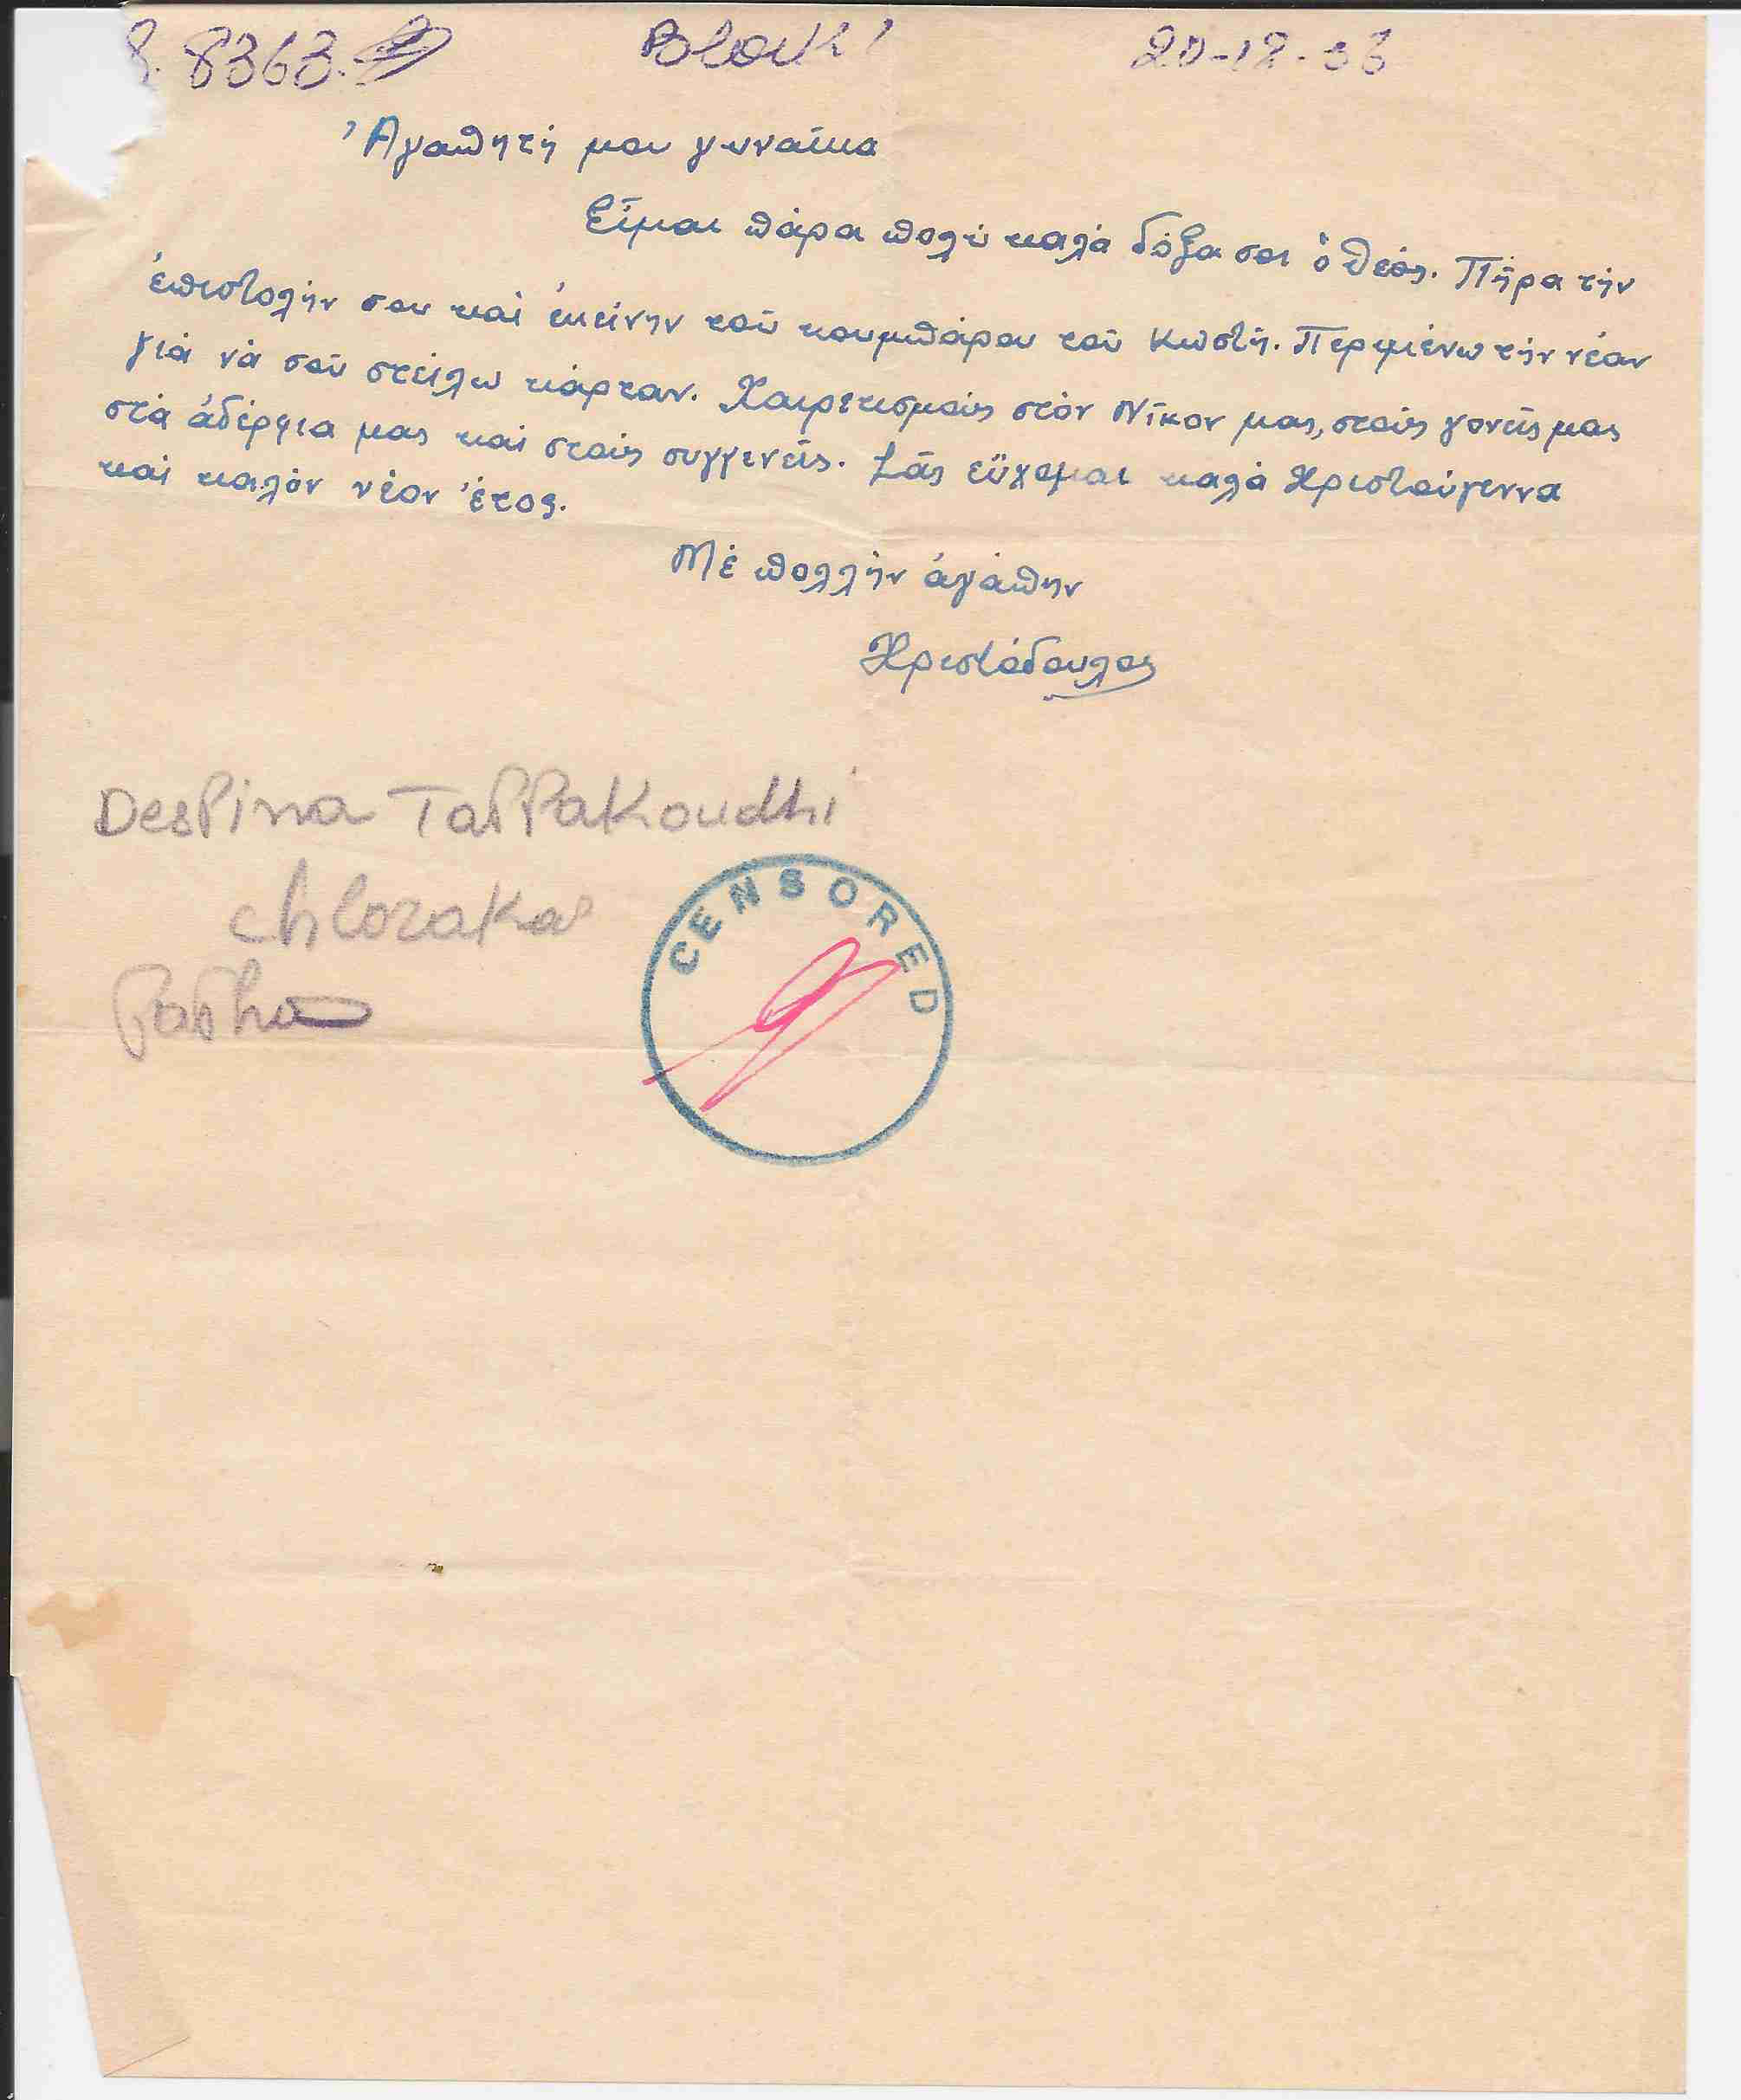 8363. Block 1 20-12-56
Ἀγαπητή μου γυναίκα
Εἶμαι πάρα πολύ καλά δόξα σοι ὁ θεός. Πῆρα τήν
ἐπιστολήν σου καί ἐκείνην τοῦ κουμπάρου τοῦ Κωστῆ. Περιμένω τήν νέαν
γιά νά σοῦ στείλω κάρταν. Χαιρετισμούς στόν Νῖκον μας, στούς γονεῖς μας
στά ἀδέρφια μας καί στούς συγγενεῖς. Σᾶς εὔχομαι καλά Χριστούγεννα
καί καλόν νέον ἔτος.
Μέ πολλήν ἀγάπην
Χριστόδουλος
Despina Tappakoudhi
Chloraka
Papho
CENSORED